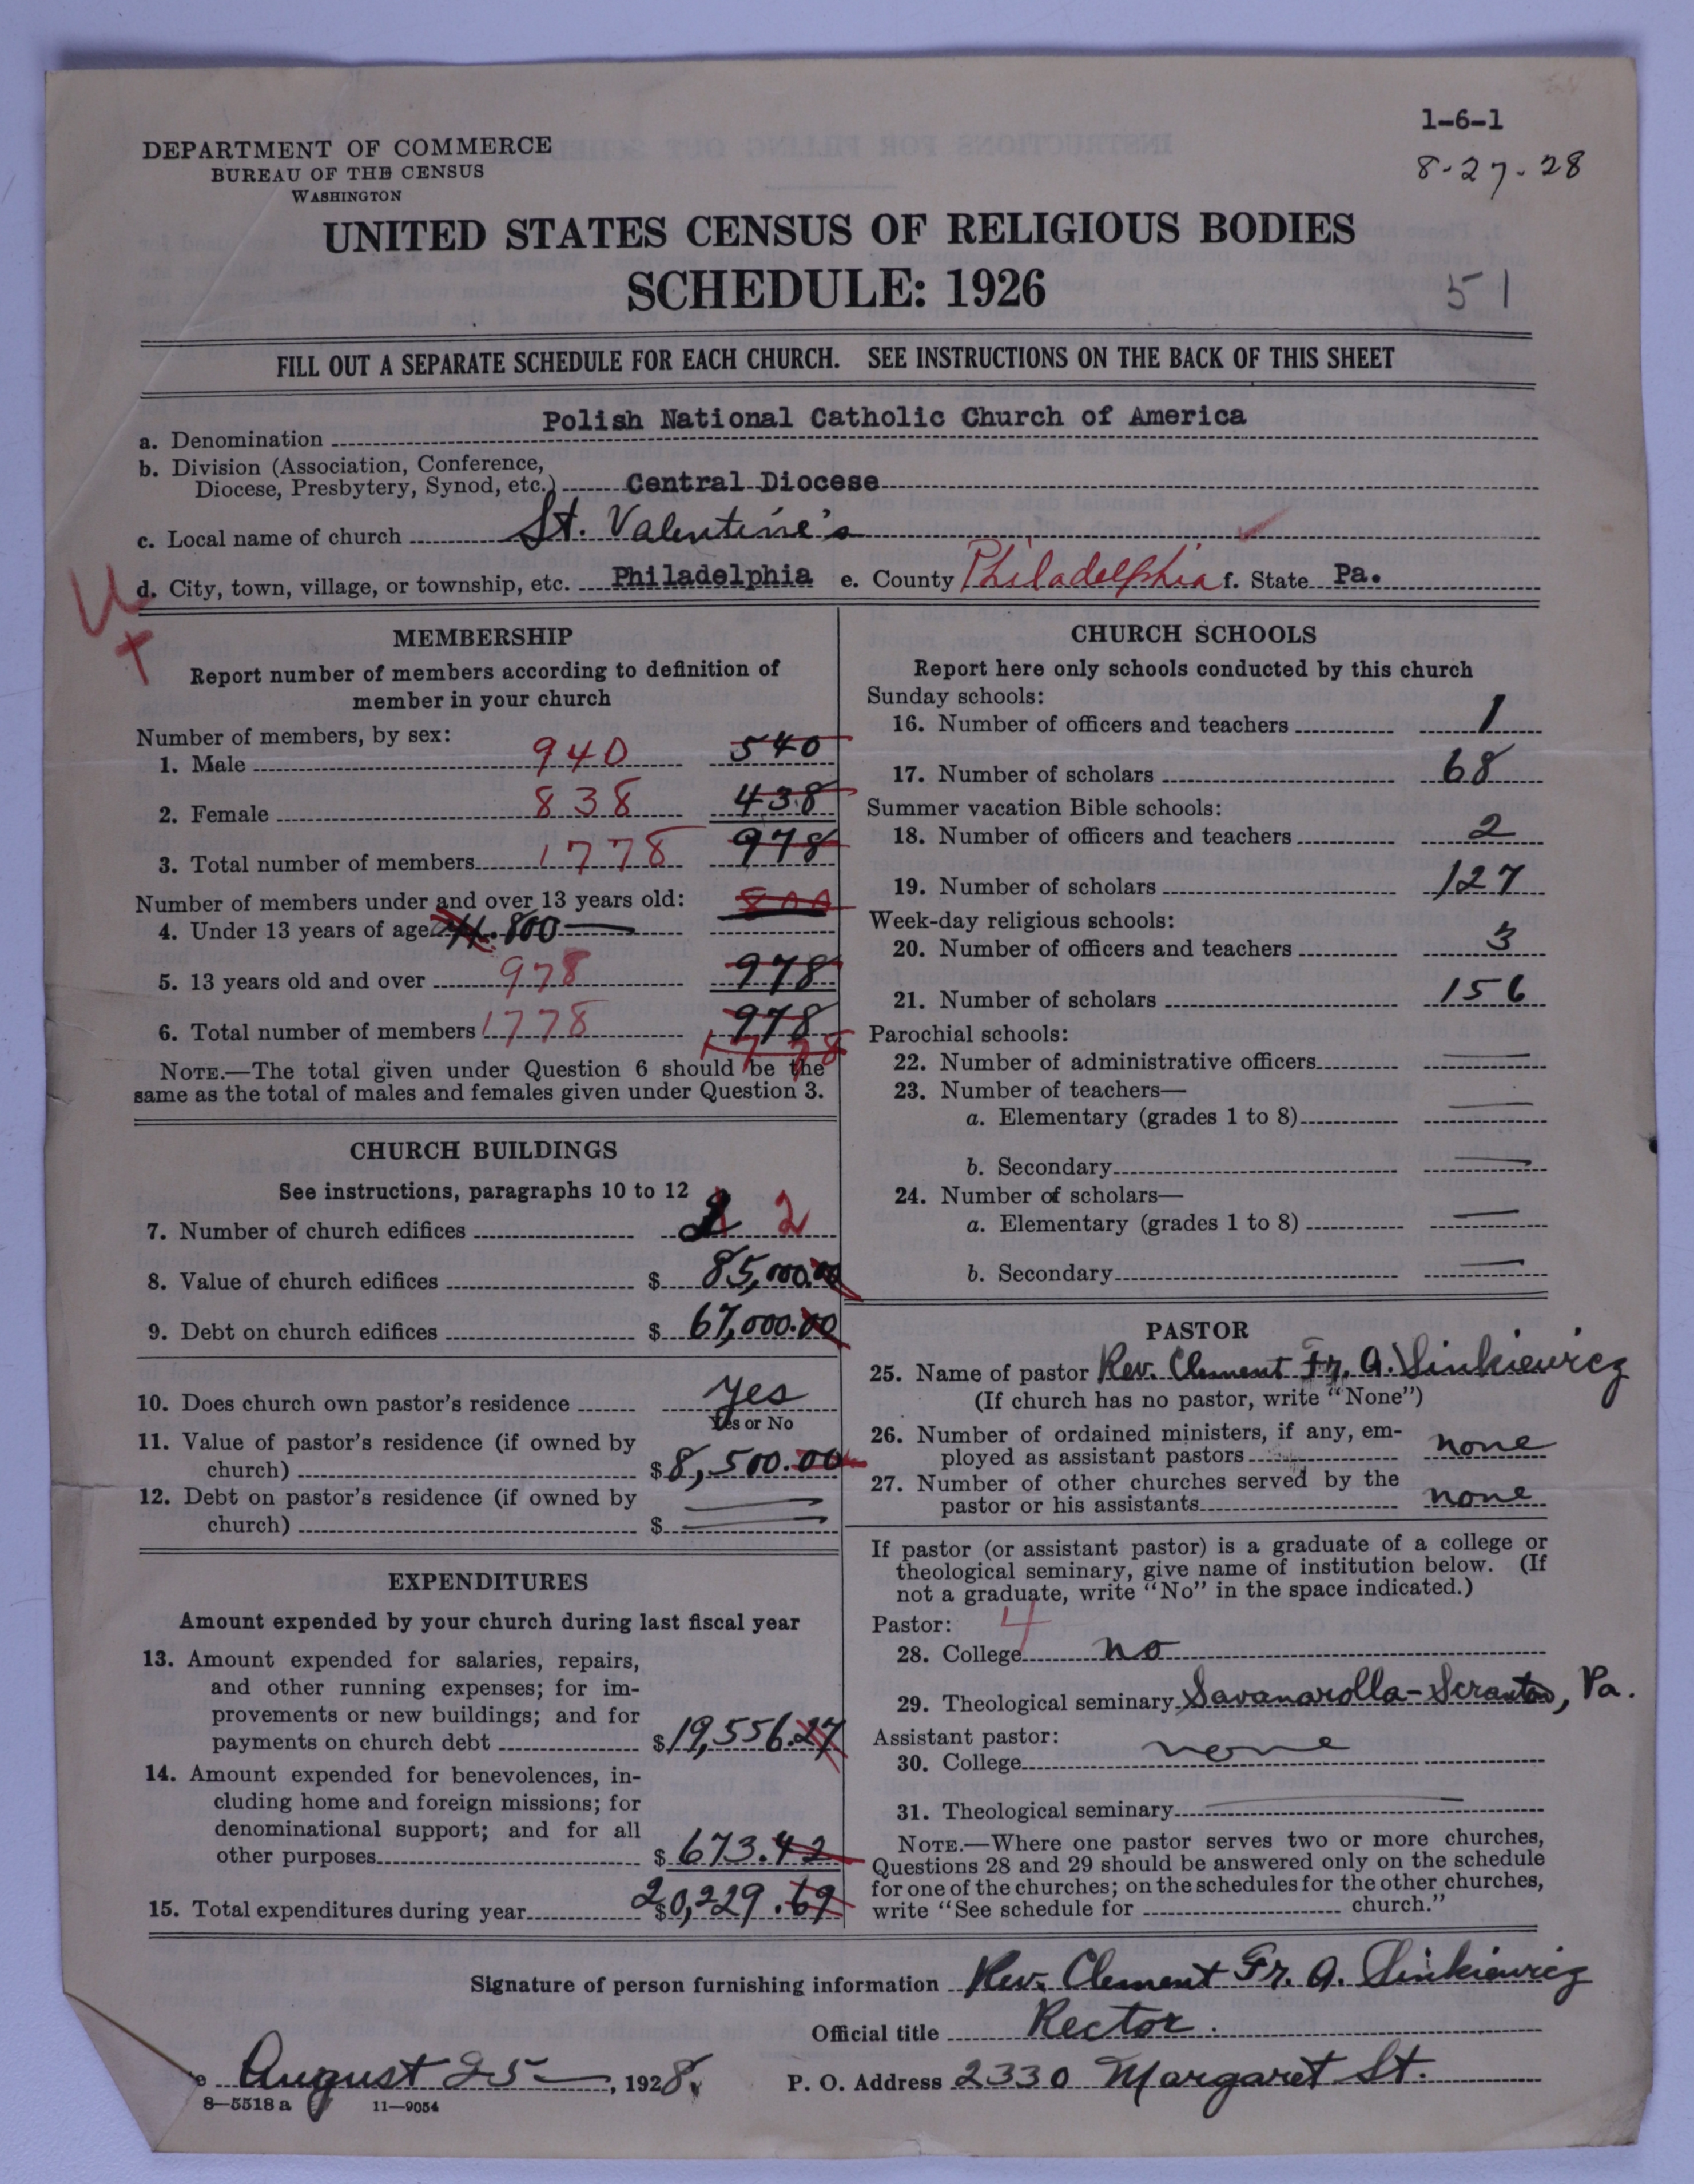 1-6-1
8-27-28
DEPARTMENT OF COMMERCE
BUREAU OF THE CENSUS
WASHINGTON
UNITED STATES CENSUS OF RELIGIOUS BODIES
SCHEDULE: 1926
51
FILL OUT A SEPARATE SCHEDULE FOR EACH CHURCH. SEE INSTRUCTIONS ON THE BACK OF THIS SHEET
a. Denomination Polish National Catholic Church of America
b. Division (Association, Conference,
Diocese, Presbytery, Synod, etc.) Central Diocese
c. Local name of church St. Valentine's
d. City, town, village, or township, etc. Philadelphia e. County Philadelphia f. State Pa.
MEMBERSHIP
Report number of members according to definition of
member in your church
Number of members, by sex:
1. Male 940 540
2. Female 838 438
3. Total number of members 1778 978
Number of members under and over 13 years old: 800
4. Under 13 years of age 800
5. 13 years old and over 978 978
6. Total number of members 1778 978
1778
NOTE.—The total given under Question 6 should be the
same as the total of males and females given under Question 3.
CHURCH BUILDINGS
See instructions, paragraphs 10 to 12
7. Number of church edifices 2 2
8. Value of church edifices $ 85,000.00
9. Debt on church edifices $ 67,000.00
10. Does church own pastor's residence yes
Yes or No
11. Value of pastor's residence (if owned by
church) $8,500.00
12. Debt on pastor's residence (if owned by
church) $
EXPENDITURES
Amount expended by your church during last fiscal year
13. Amount expended for salaries, repairs,
and other running expenses; for im-
provements or new buildings; and for
payments on church debt $19,556.27
14. Amount expended for benevolences, in-
cluding home and foreign missions; for
denominational support; and for all
other purposes $673.42
15. Total expenditures during year $20,229.69
CHURCH SCHOOLS
Report here only schools conducted by this church
Sunday schools:
16. Number of officers and teachers 1
17. Number of scholars 68
Summer vacation Bible schools:
18. Number of officers and teachers 2
19. Number of scholars 127
Week-day religious schools:
20. Number of officers and teachers 3
21. Number of scholars 156
Parochial schools:
22. Number of administrative officers
23. Number of teachers—
a. Elementary (grades 1 to 8)
b. Secondary
24. Number of scholars—
a. Elementary (grades 1 to 8)
b. Secondary
PASTOR
25. Name of pastor Rev. Clement Fr. A. Sinkiewicz
(If church has no pastor, write "None")
26. Number of ordained ministers, if any, em-
ployed as assistant pastors none
27. Number of other churches served by the
pastor or his assistants none
If pastor (or assistant pastor) is a graduate of a college or
theological seminary, give name of institution below. (If
not a graduate, write "No" in the space indicated.)
Pastor: 4
28. College no
29. Theological seminary Savanarolla-Scranton, Pa.
Assistant pastor:
30. College none
31. Theological seminary
NOTE.—Where one pastor serves two or more churches,
Questions 28 and 29 should be answered only on the schedule
for one of the churches; on the schedules for the other churches,
write "See schedule for church."
Signature of person furnishing information Rev. Clement Fr. A. Sinkiewicz
Official title Rector.
August 25, 1928. P. O. Address 2330 Margaret St.
8—5518 a 11—9054